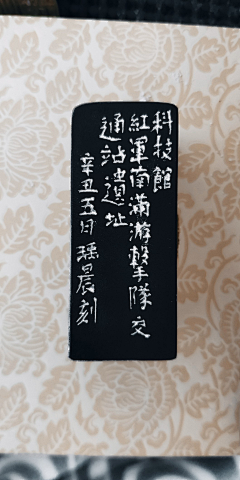 科技館
紅軍南滿游擊隊交
通站遺址
辛丑五月瑀晨刻